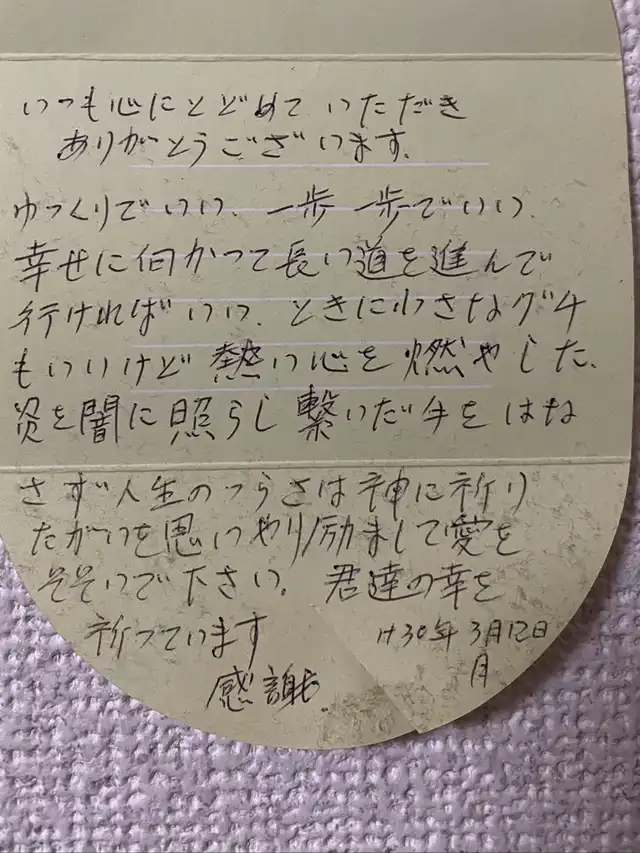 いつも心にとどめて いただき
ありがとうございます。
ゆっくりでいい、一歩一歩でいい、
幸せに向かって長い道を進んで
行ければいい、ときに小さなグチ
もいいけど 熱い心を燃やした、
炎を闇に照らし 繋いだ手をはな
さず人生のつらさは神に祈り
たがいを思いやり励まして愛を
そそいで下さい。君達の幸を
祈っています
H30年 3月12日
月
感謝